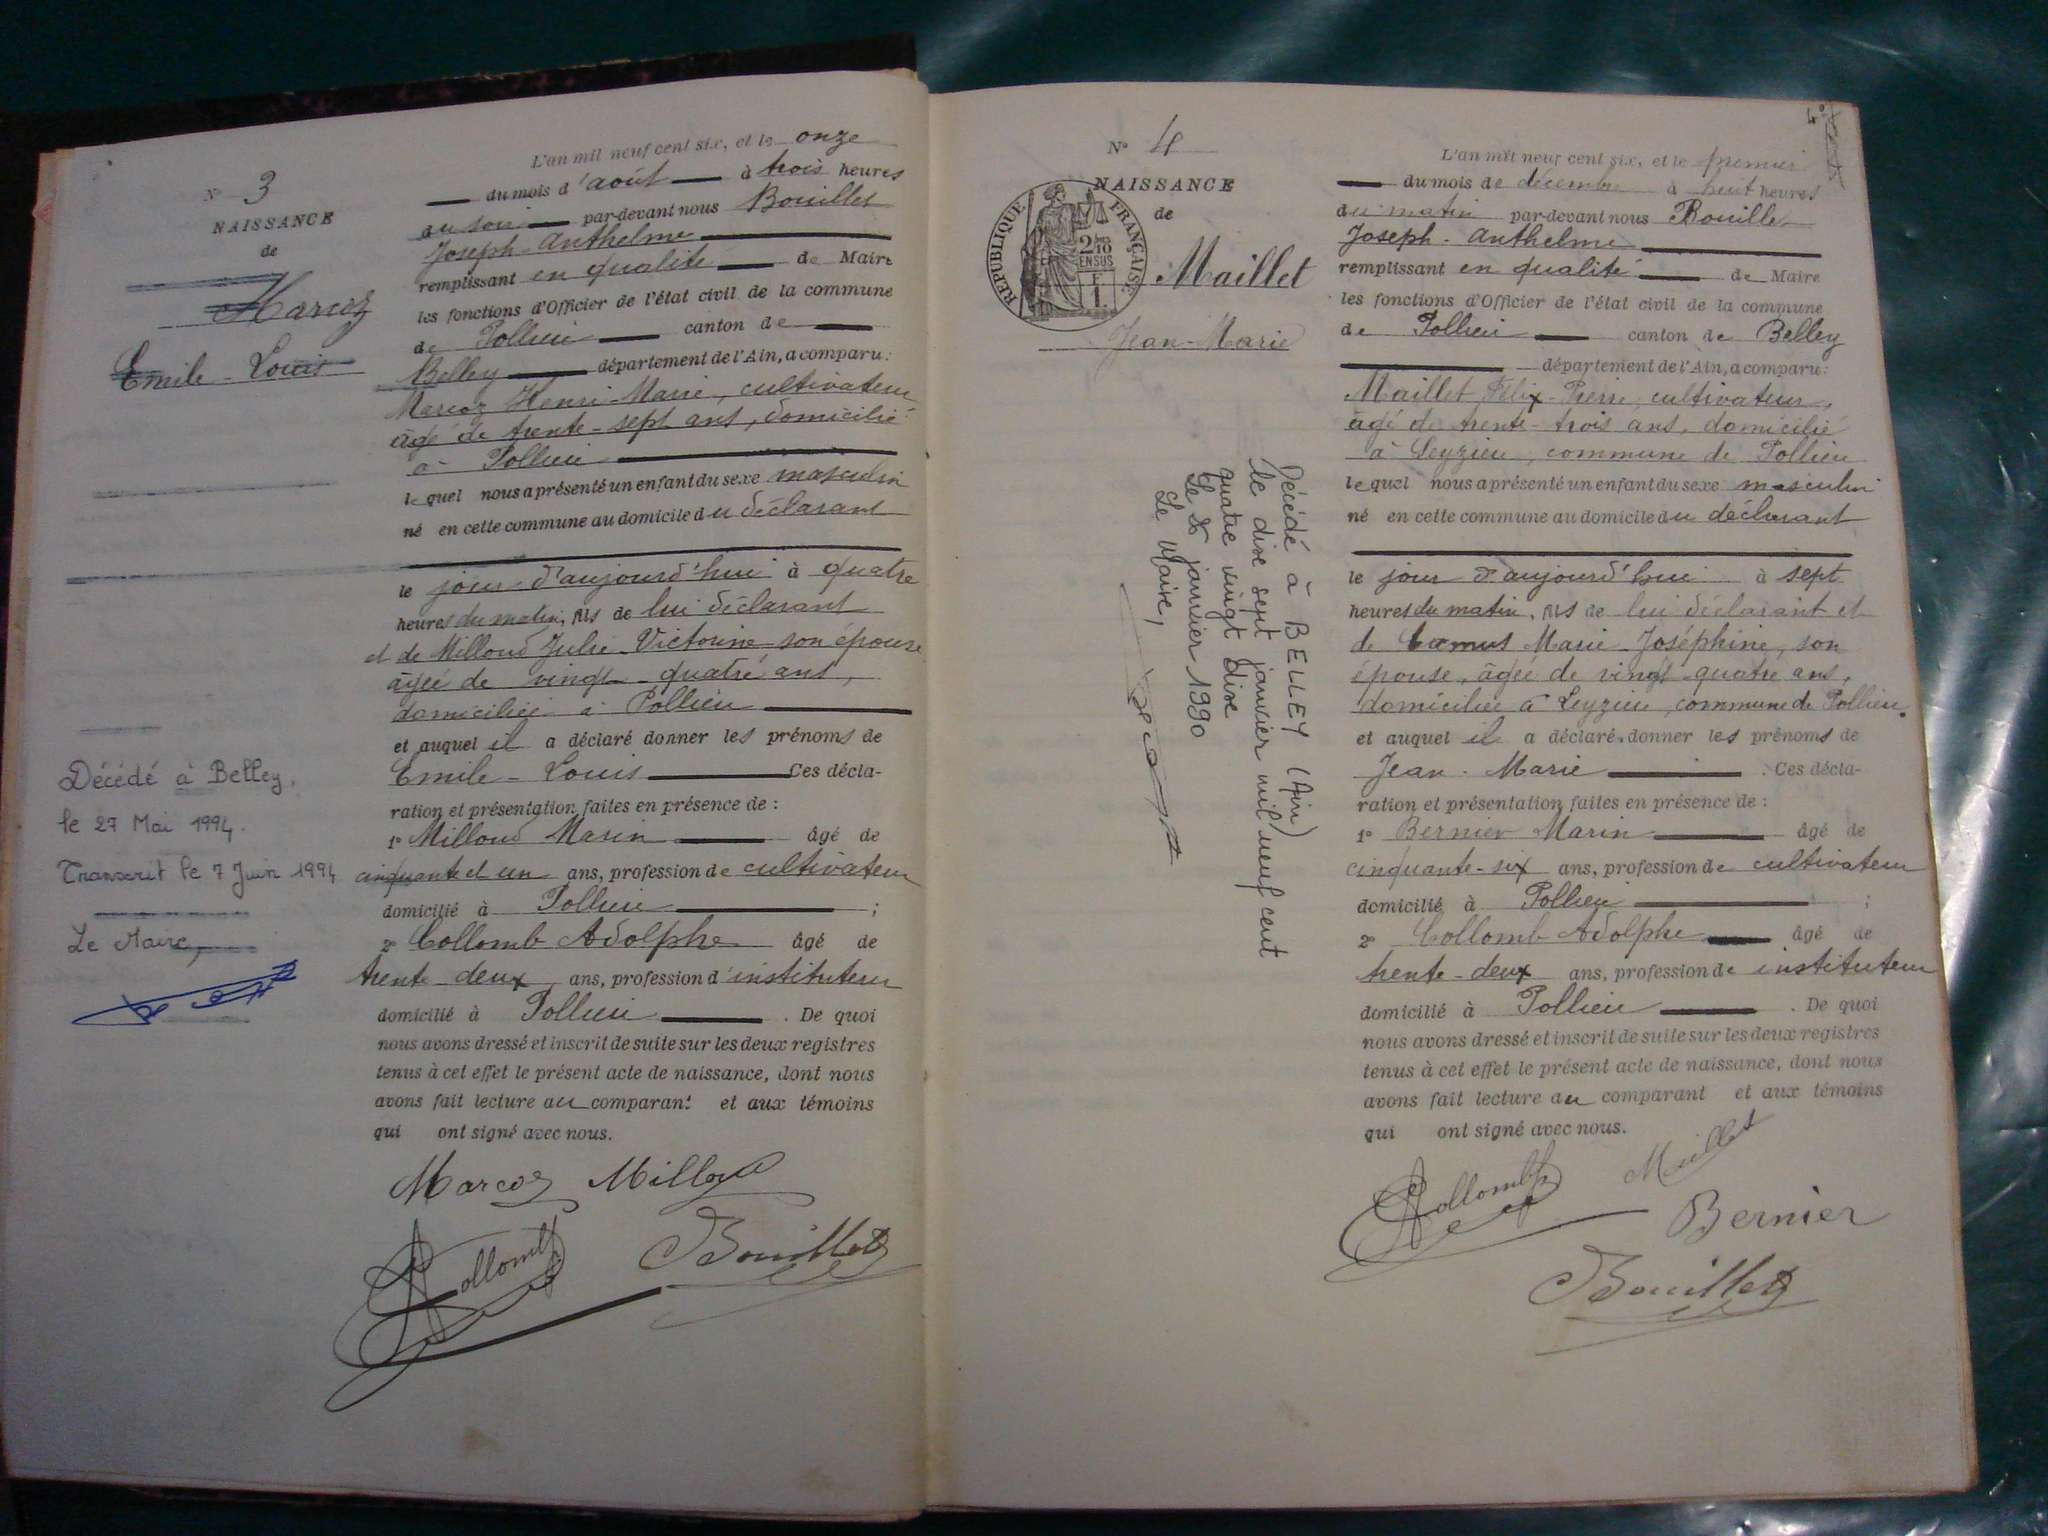 N° 3
NAISSANCE
de
Marcoz
Emile - Louis
Décédé à Belley,
le 27 Mai 1994.
Transcrit le 7 Juin 1994
Le Maire,
L'an mil neuf cent six, et le onze
du mois d'août à trois heures
du soir par-devant nous Bouillet
Joseph - Anthelme
remplissant en qualité de Maire
les fonctions d'Officier de l'état civil de la commune
de Pollieu canton de
Belley département de l'Ain, a comparu:
Marcoz Henri-Marie, cultivateur
âgé de trente-sept ans, domicilié
à Pollieu
lequel nous a présenté un enfant du sexe masculin
né en cette commune au domicile du déclarant
le jour d'aujourd'hui à quatre
heures du matin, fils de lui déclarant
et de Milloud Julie Victorine son épouse
âgée de vingt-quatre ans,
domiciliée à Pollieu
et auquel il a déclaré donner les prénoms de
Emile - Louis Ces décla-
ration et présentation faites en présence de :
1° Milloud Marin âgé de
cinquante et un ans, profession de cultivateur
domicilié à Pollieu ;
2° Collomb Adolphe âgé de
trente-deux ans, profession d'instituteur
domicilié à Pollieu . De quoi
nous avons dressé et inscrit de suite sur les deux registres
tenus à cet effet le présent acte de naissance, dont nous
avons fait lecture au comparant et aux témoins
qui ont signé avec nous.
Marcoz Milloud
Collomb Bouillet
4°
N° 4
NAISSANCE
de
REPUBLIQUE FRANÇAISE
2/10 EN SUS
F
1.
Maillet
Jean-Marie
Décédé à BELLEY (Ain)
le dix sept janvier mil neuf cent
quatre vingt dix
Le 18 janvier 1990
Le Maire,
L'an mil neuf cent six, et le premier
du mois de décembre à huit heures
du matin par-devant nous Bouillet
Joseph - Anthelme
remplissant en qualité de Maire
les fonctions d'Officier de l'état civil de la commune
de Pollieu canton de Belley
département de l'Ain, a comparu:
Maillet Félix-Pierre, cultivateur,
âgé de trente-trois ans, domicilié
à Leyzieu, commune de Pollieu
lequel nous a présenté un enfant du sexe masculin
né en cette commune au domicile du déclarant
le jour d'aujourd'hui à sept
heures du matin, fils de lui déclarant et
de Camus Marie Joséphine, son
épouse, âgée de vingt-quatre ans,
domiciliée à Leyzieu, commune de Pollieu.
et auquel il a déclaré donner les prénoms de
Jean - Marie . Ces décla-
ration et présentation faites en présence de :
1° Bernier Marin âgé de
cinquante-six ans, profession de cultivateur
domicilié à Pollieu ;
2° Collomb Adolphe âgé de
trente-deux ans, profession de instituteur
domicilié à Pollieu . De quoi
nous avons dressé et inscrit de suite sur les deux registres
tenus à cet effet le présent acte de naissance, dont nous
avons fait lecture au comparant et aux témoins
qui ont signé avec nous.
Collomb Maillet
Bernier
Bouillet